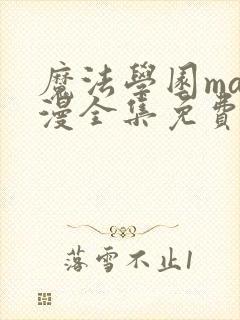 魔法學園ma
漫全集免費
落雪不止1